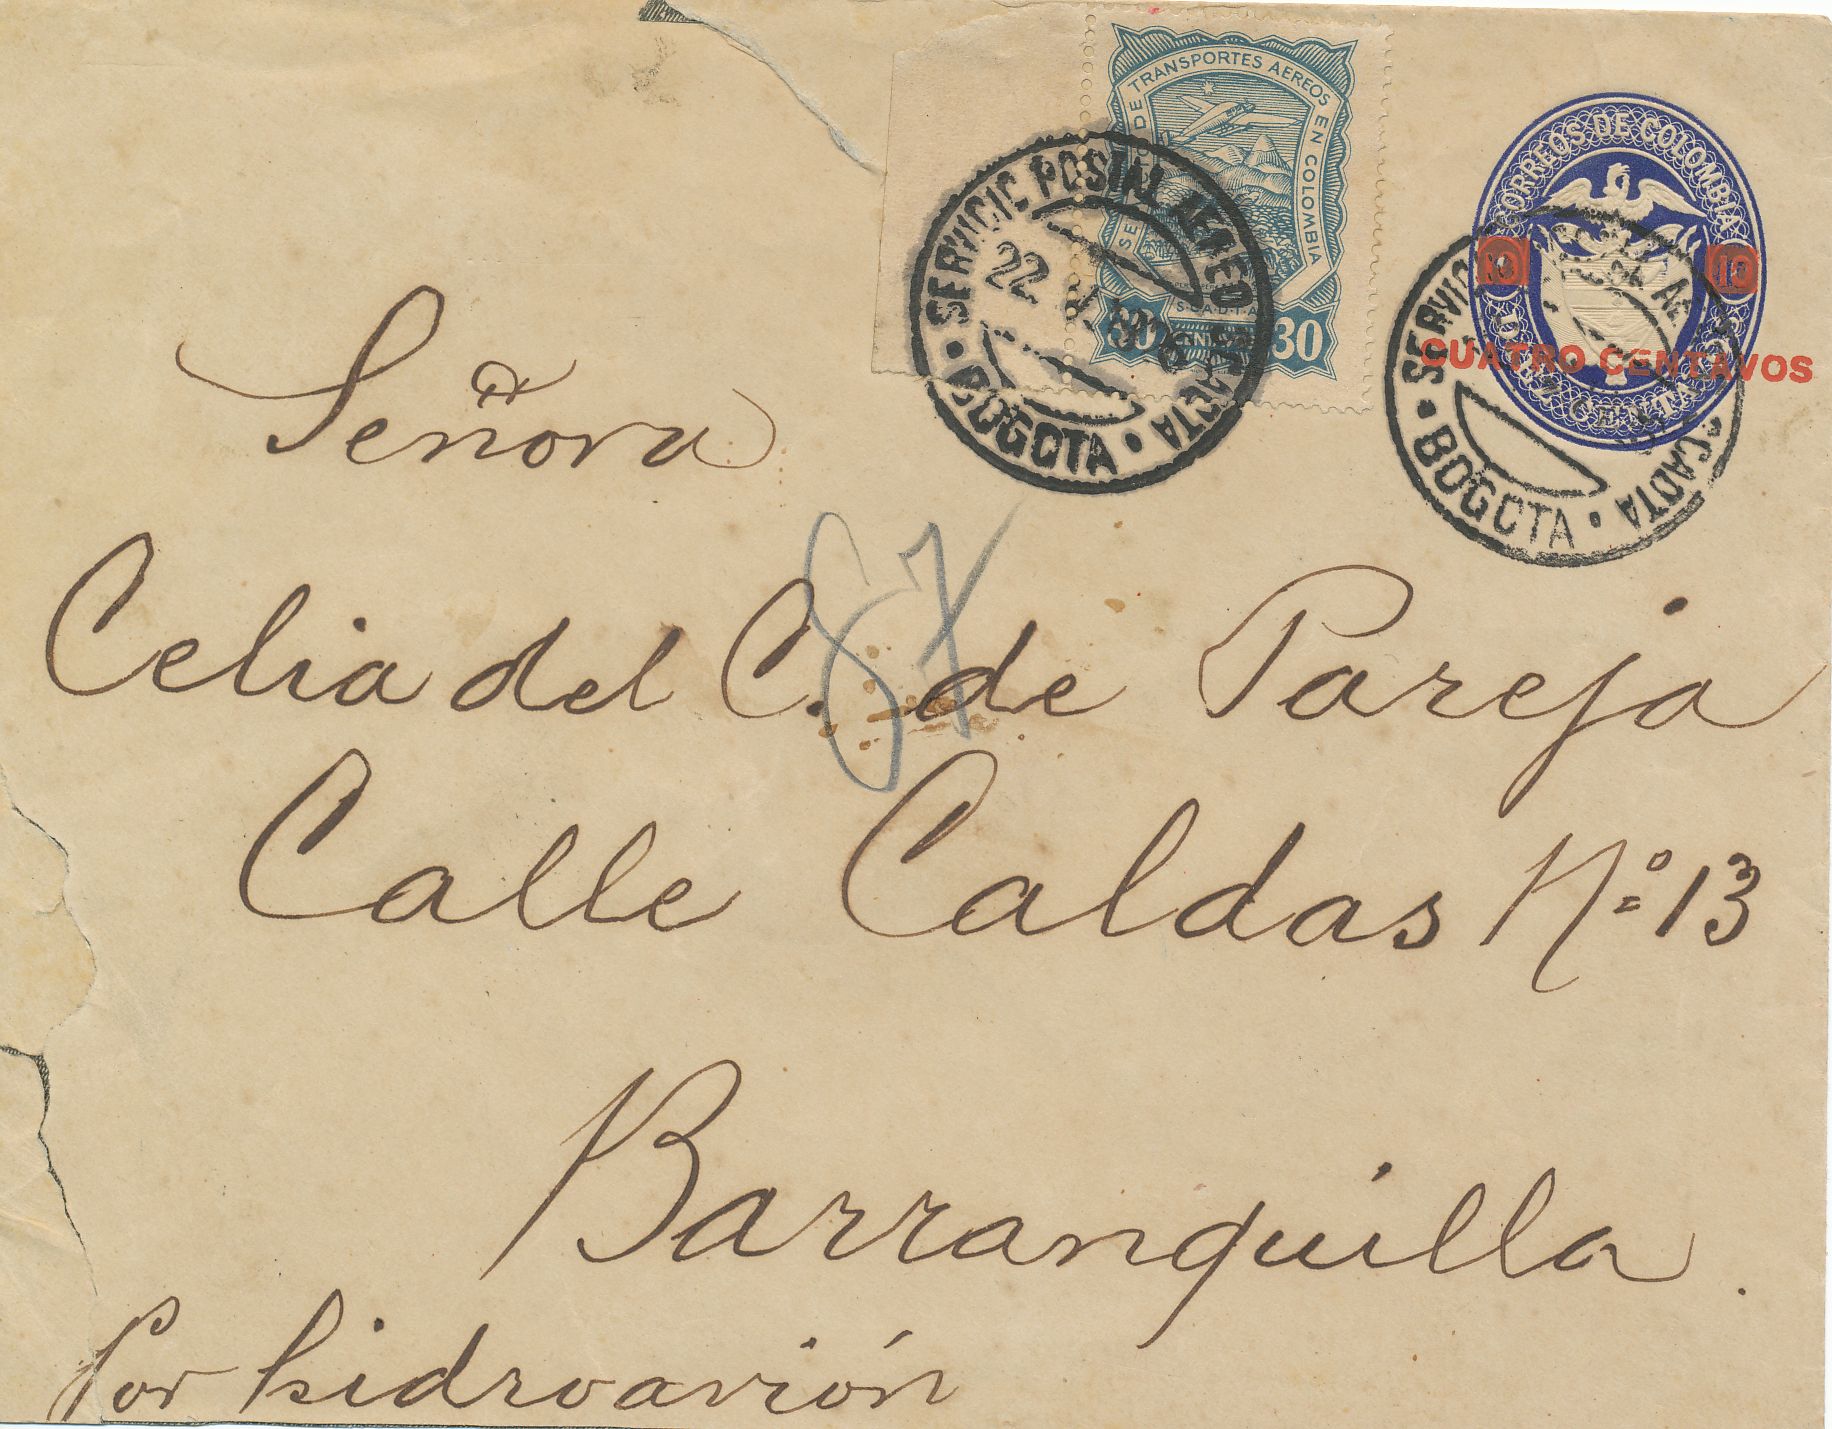 SERVICIO DE TRANSPORTES AEREOS EN COLOMBIA
S.C.A.D.T.A.
30 CENTAVOS 30
SERVICIO POSTAL AEREO SCADTA
BOGOTA
22
CORREOS DE COLOMBIA
10 10
DIEZ CENTAVOS
CUATRO CENTAVOS
SERVICIO POSTAL AEREO SCADTA
BOGOTA
Señora
87
Celia del C. de Pareja
Calle Caldas No. 13
Barranquilla.
Por hidroavión